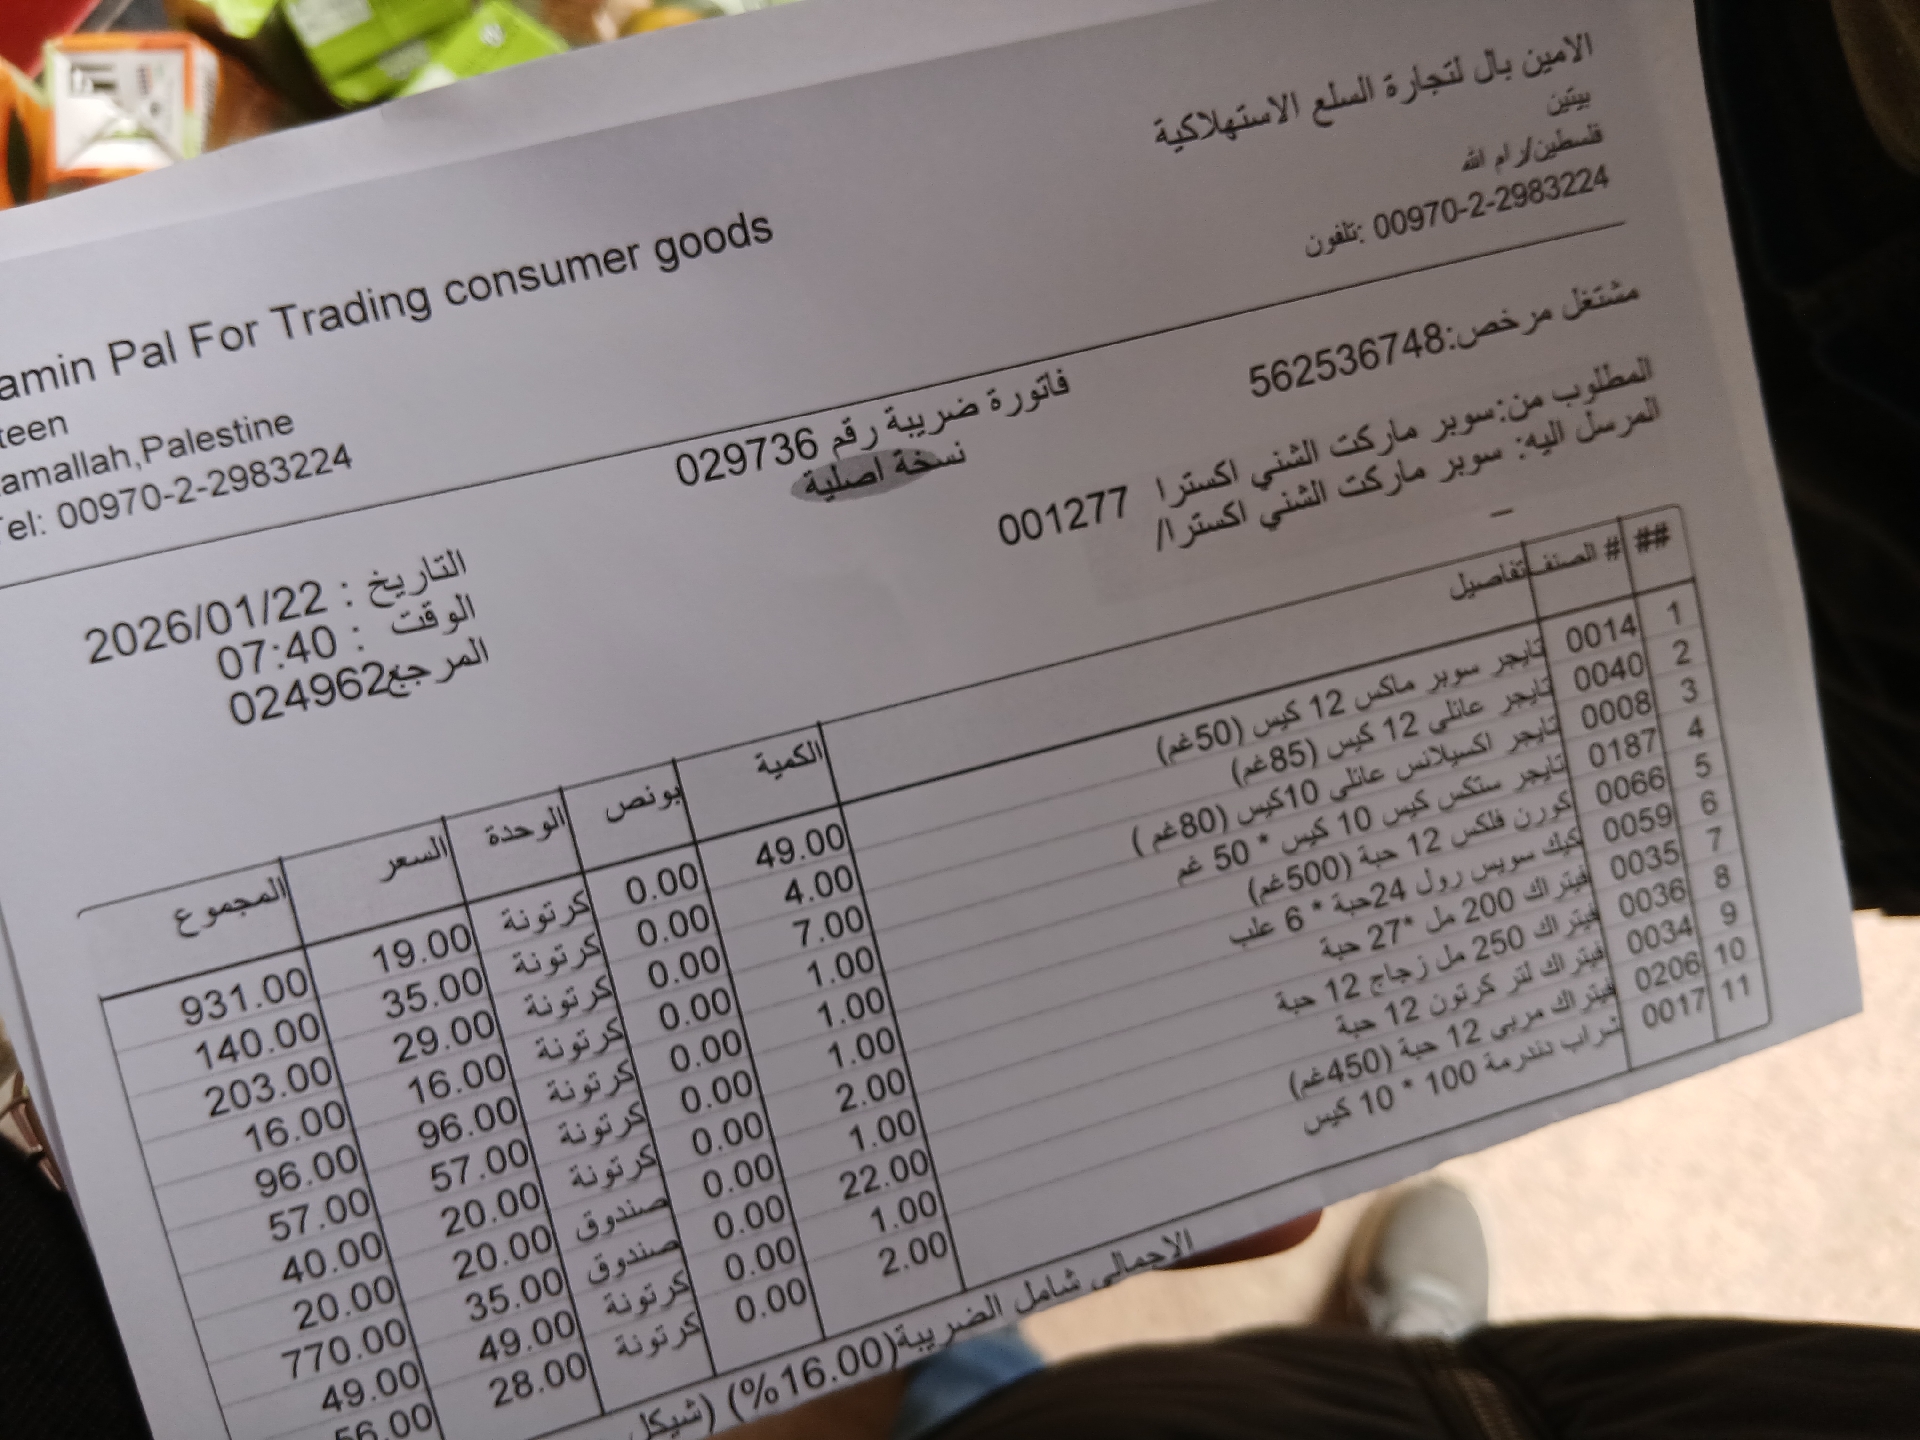 الامين بال لتجارة السلع الاستهلاكية
بيتين
فلسطين/رام الله
تلفون: 00970-2-2983224
amin Pal For Trading consumer goods
teen
amallah,Palestine
Tel: 00970-2-2983224
مشتغل مرخص:562536748
فاتورة ضريبة رقم 029736
نسخة اصلية
المطلوب من:سوبر ماركت الشني اكسترا 001277
المرسل اليه: سوبر ماركت الشني اكسترا/
التاريخ : 2026/01/22
الوقت : 07:40
المرجع024962
## # الصنف تفاصيل الكمية بونص الوحدة السعر المجموع
1 0014 تايجر سوبر ماكس 12 كيس (50غم) 49.00 0.00 كرتونة 19.00 931.00
2 0040 تايجر عائلي 12 كيس (85غم) 4.00 0.00 كرتونة 35.00 140.00
3 0008 تايجر اكسيلانس عائلي 10كيس (80غم ) 7.00 0.00 كرتونة 29.00 203.00
4 0187 تايجر ستكس كيس 10 كيس * 50 غم 1.00 0.00 كرتونة 16.00 16.00
5 0066 كورن فلكس 12 حبة (500غم) 1.00 0.00 كرتونة 96.00 96.00
6 0059 كيك سويس رول 24حبة * 6 علب 1.00 0.00 كرتونة 57.00 57.00
7 0035 فيتراك 200 مل *27 حبة 2.00 0.00 كرتونة 20.00 40.00
8 0036 فيتراك 250 مل زجاج 12 حبة 1.00 0.00 صندوق 20.00 20.00
9 0034 فيتراك لتر كرتون 12 حبة 22.00 0.00 صندوق 35.00 770.00
10 0206 فيتراك مربى 12 حبة (450غم) 1.00 0.00 كرتونة 49.00 49.00
11 0017 شراب دندرمة 100 * 10 كيس 2.00 0.00 كرتونة 28.00 56.00
الاجمالي شامل الضريبة(16.00%) (شيكل